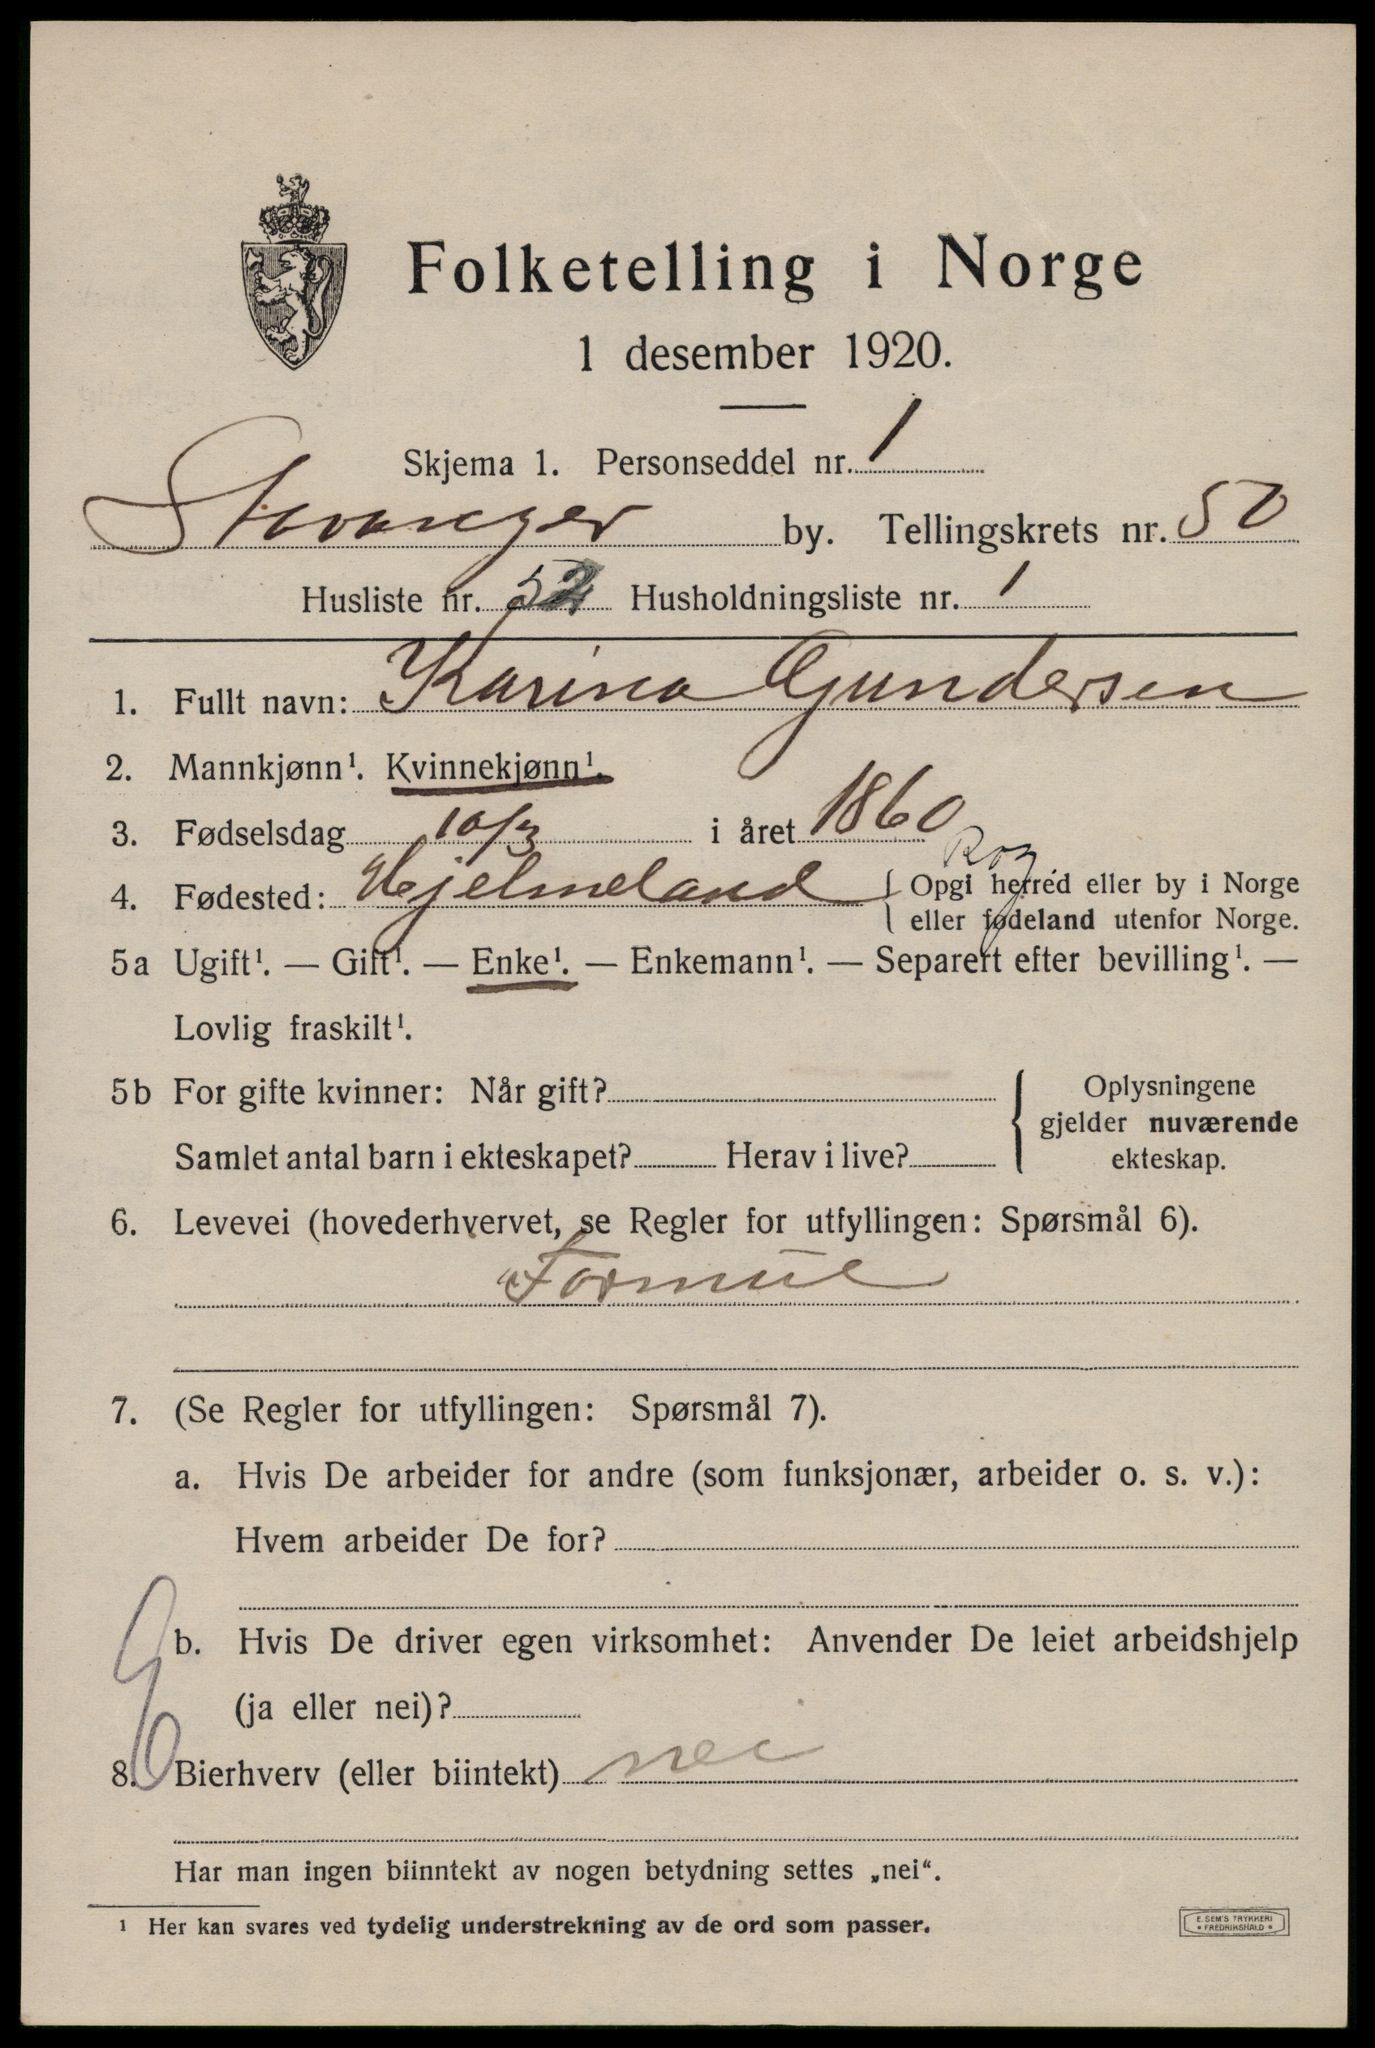 Folketelling i Norge
1 desember 1920.
Skjema 1. Personseddel nr. 1
Stavanger by. Tellingskrets nr. 50
Husliste nr. 52 Husholdningsliste nr. 1
1. Fullt navn: Karina Gundersen
2. Mannkjønn¹. Kvinnekjønn¹.
3. Fødselsdag 10/3 i året 1860
Rog
4. Fødested: Hjelmeland { Opgi herred eller by i Norge
eller fødeland utenfor Norge.
5a Ugift¹. — Gift¹. — Enke¹. — Enkemann¹. — Separert efter bevilling¹. —
Lovlig fraskilt¹.
5b For gifte kvinner: Når gift? { Oplysningene
gjelder nuværende
Samlet antal barn i ekteskapet? Herav i live? ekteskap.
6. Levevei (hovederhvervet, se Regler for utfyllingen: Spørsmål 6).
Formue
7. (Se Regler for utfyllingen: Spørsmål 7).
a. Hvis De arbeider for andre (som funksjonær, arbeider o. s. v.):
Hvem arbeider De for?
b. Hvis De driver egen virksomhet: Anvender De leiet arbeidshjelp
(ja eller nei)?
8. Bierhverv (eller biintekt) nei
Har man ingen biinntekt av nogen betydning settes „nei“.
¹ Her kan svares ved tydelig understrekning av de ord som passer.
E. SEM'S TRYKKERI
• FREDRIKSHALD •